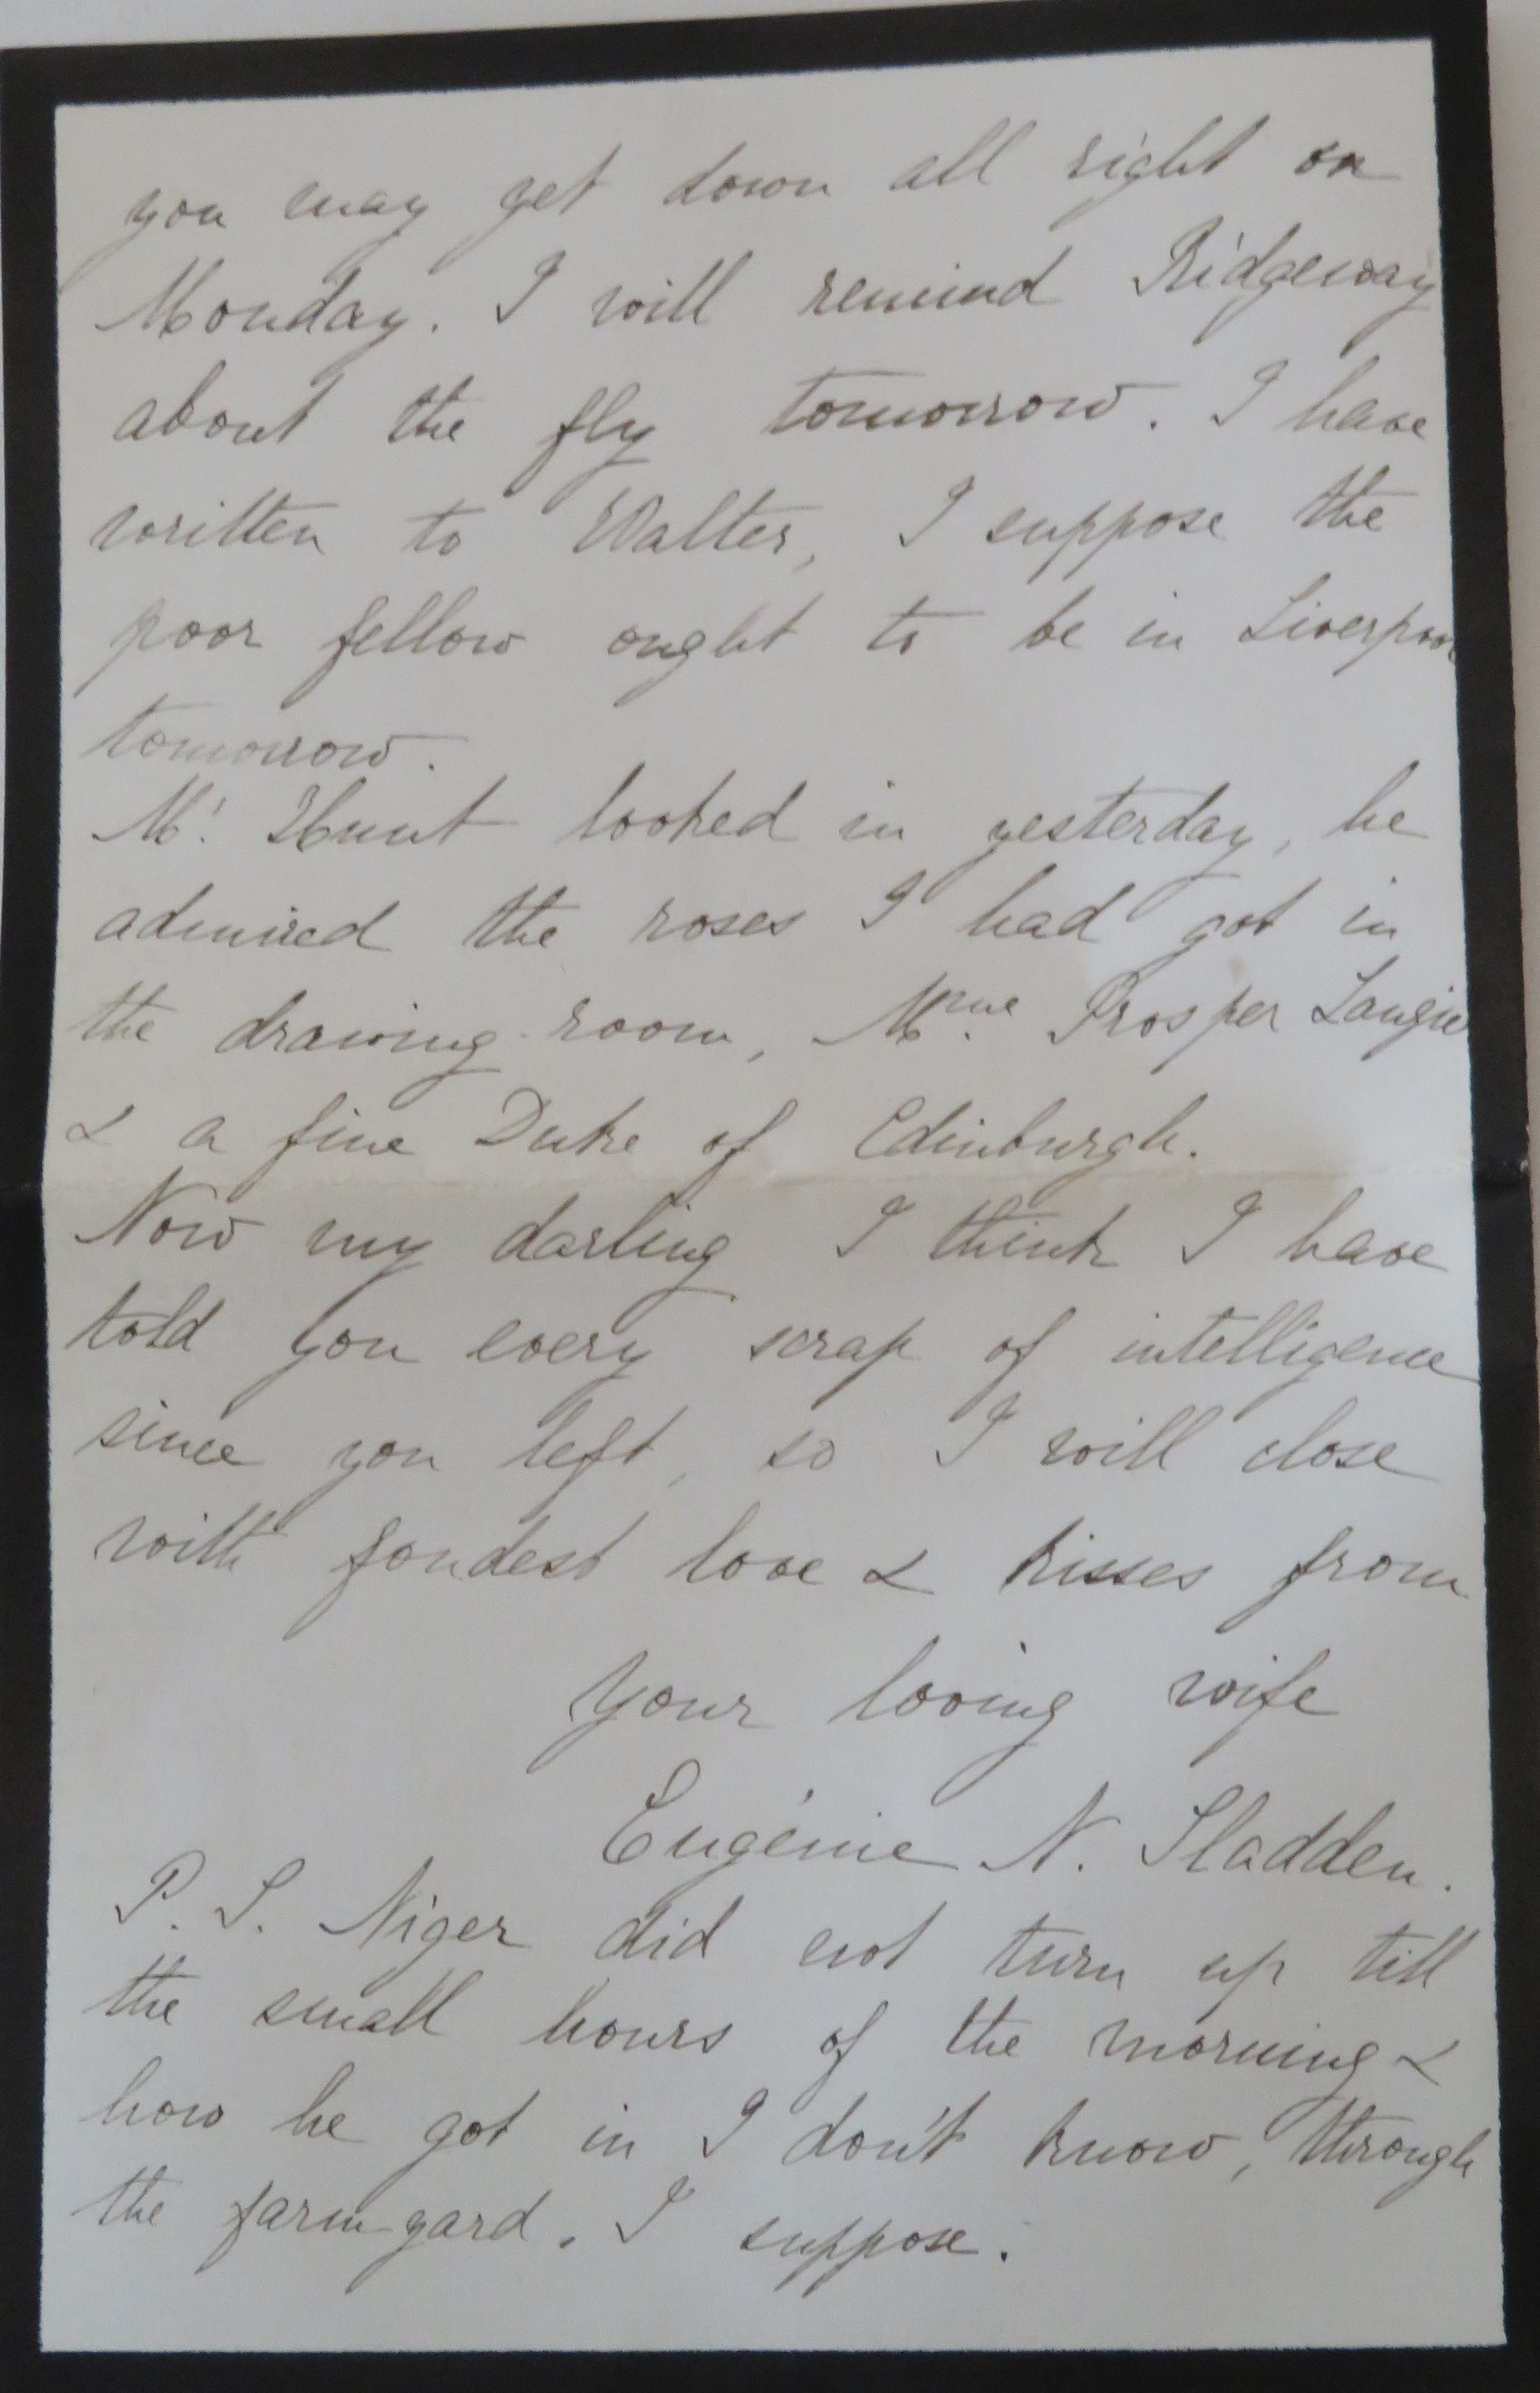 you may get down all right on
Monday. I will remind Ridgeway
about the fly tomorrow. I have
written to Walter, I suppose the
poor fellow ought to be in Liverpool
tomorrow.
Mr. Hunt looked in yesterday, he
admired the roses I had got in
the drawing-room, Mme. Prosper Laugier
& a fine Duke of Edinburgh.
Now my darling I think I have
told you every scrap of intelligence
since you left, so I will close
with fondest love & kisses from
your loving wife
Eugénie N. Sladden.
P. S. Niger did not turn up till
the small hours of the morning &
how he got in I don't know, through
the farm-yard. I suppose.